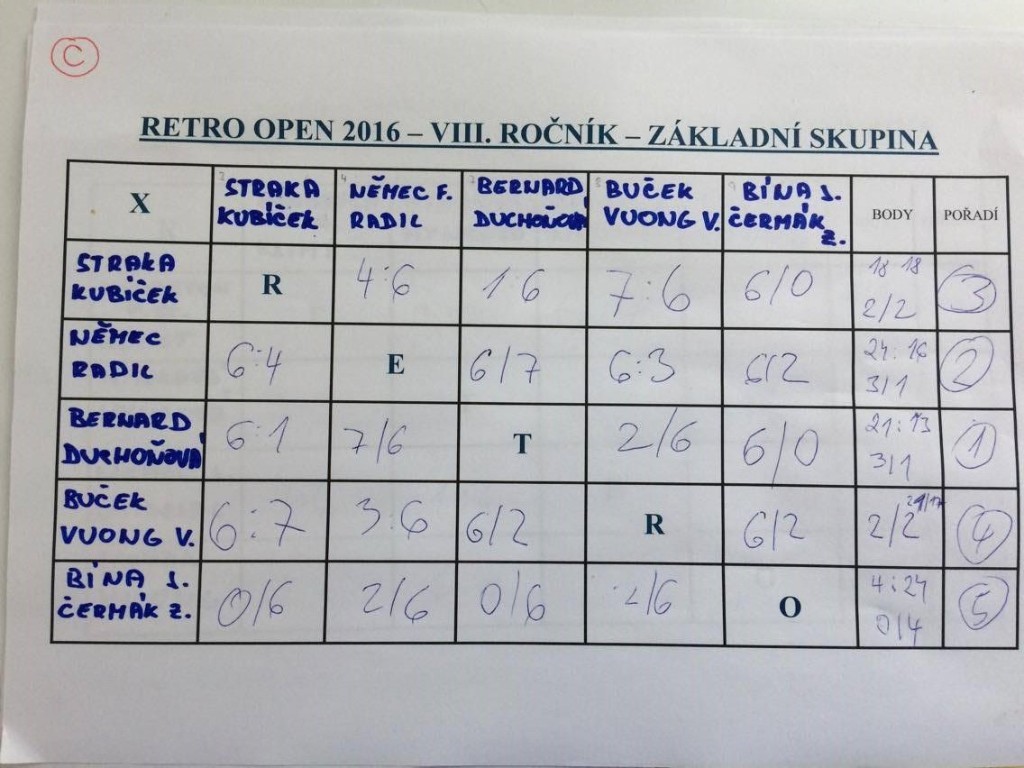 C
RETRO OPEN 2016 – VIII. ROČNÍK – ZÁKLADNÍ SKUPINA
X STRAKA KUBÍČEK NĚMEC F. RADIL BERNARD DUCHOŇOVÁ BUČEK VUONG V. BÍNA J. ČERMÁK Z. BODY POŘADÍ
STRAKA KUBÍČEK R 4:6 1:6 7:6 6/0 18 18 2/2 3
NĚMEC RADIL 6:4 E 6/7 6:3 6/2 24:16 3/1 2
BERNARD DUCHOŇOVÁ 6:1 7/6 T 2/6 6/0 21:13 3/1 1
BUČEK VUONG V. 6:7 3:6 6/2 R 6/2 2/2 21/17 4
BÍNA J. ČERMÁK Z. 0/6 2/6 0/6 2/6 O 4:24 0/4 5